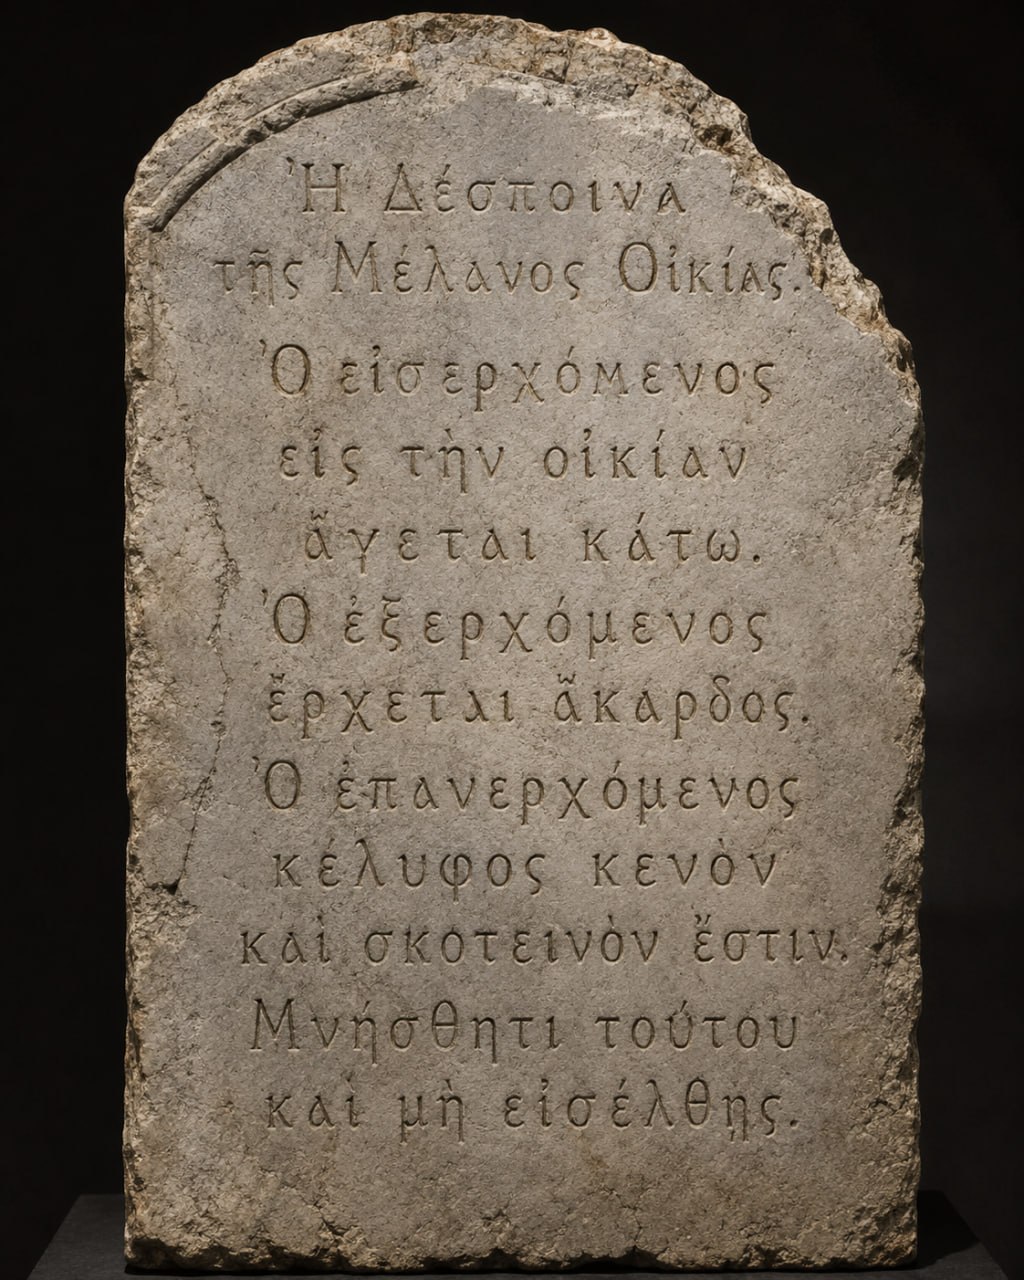 Ἡ Δέσποινα
τῆς Μέλανος Οἰκίας.
Ὁ εἰσερχόμενος
εἰς τὴν οἰκίαν
ἄγεται κάτω.
Ὁ ἐξερχόμενος
ἔρχεται ἄκαρδος.
Ὁ ἐπανερχόμενος
κέλυφος κενὸν
καὶ σκοτεινὸν ἔστιν.
Μνήσθητι τούτου
καὶ μὴ εἰσέλθῃς.